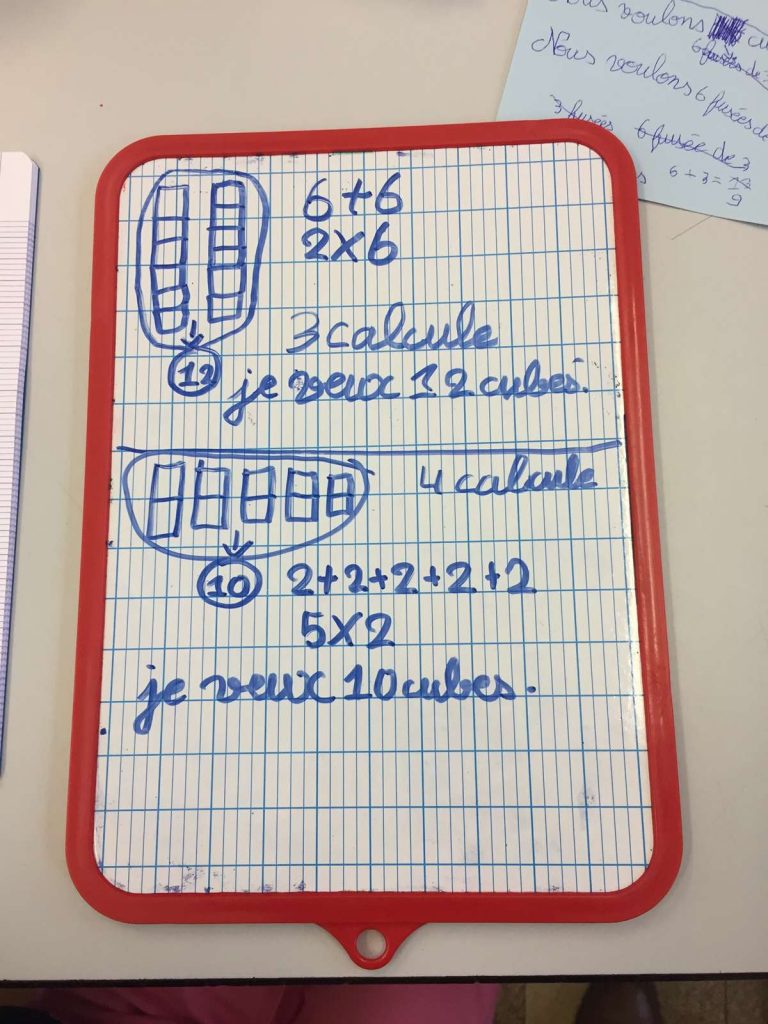 6+6
2x6
3 calcule
12
je veux 12 cubes.
4 calcule
10
2+2+2+2+2
5x2
je veux 10 cubes.
voulons
6 fusées de 3
Nous voulons 6 fusées de
3 fusées 6 fusée de 3
6+3=
9